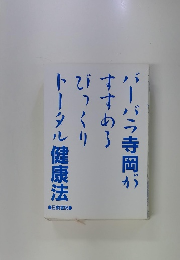 バーバラ寺岡が
すすめる
びっくり
トータル健康法